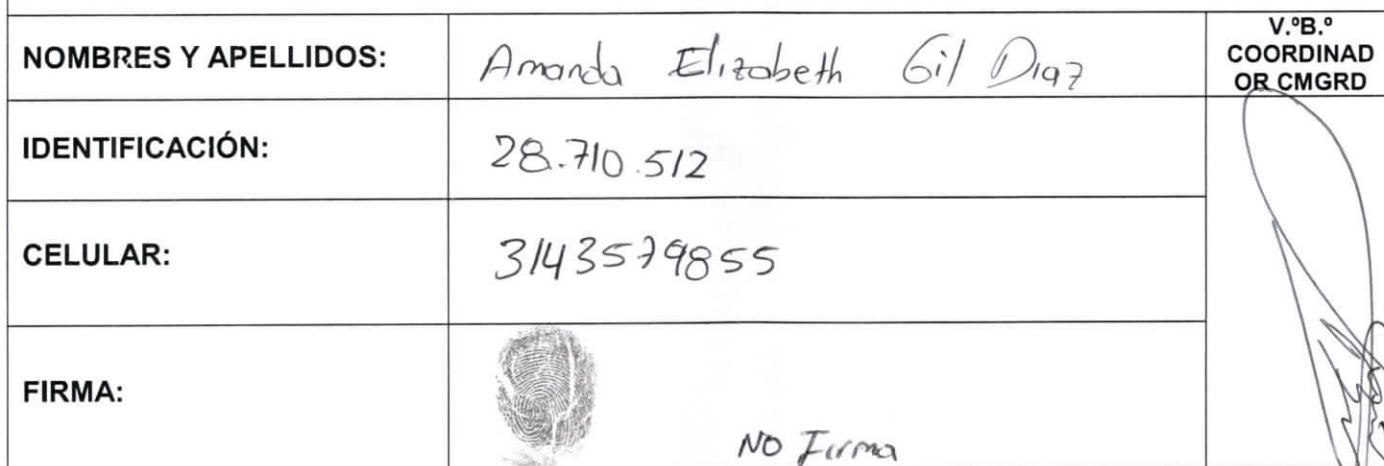 NOMBRES Y APELLIDOS: Amanda Elizabeth Gil Diaz
V.ºB.º
COORDINAD
OR CMGRD
IDENTIFICACIÓN: 28.710.512
CELULAR: 3143579855
FIRMA: NO Firma